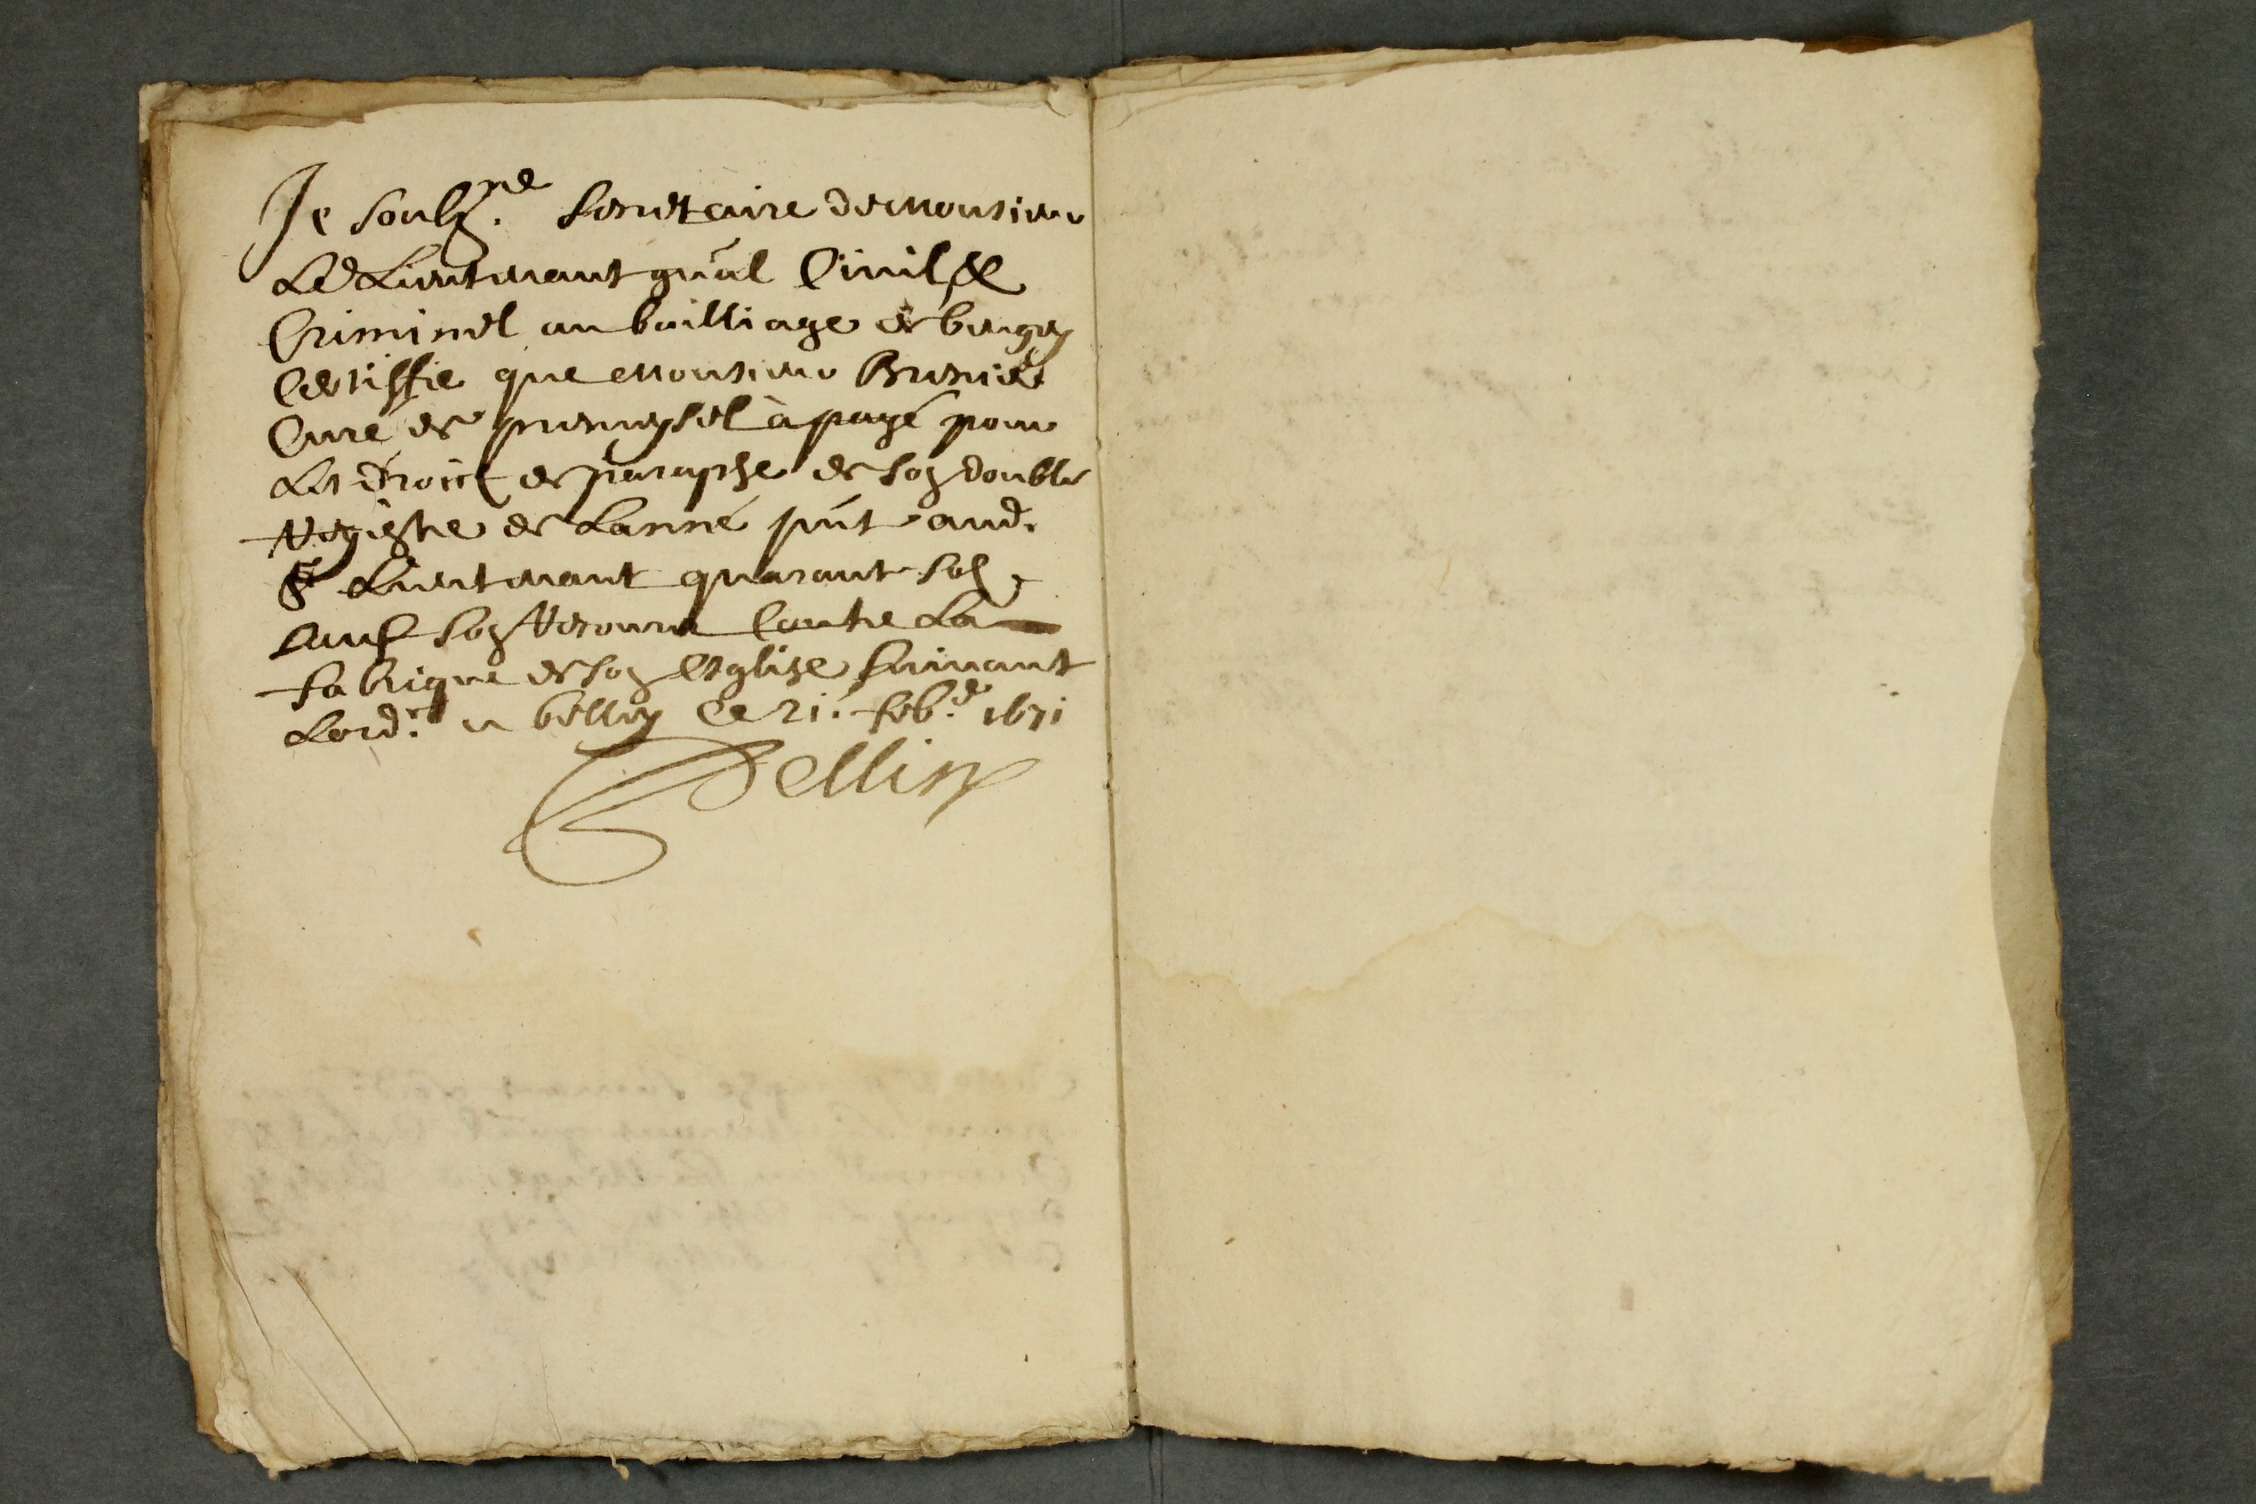 Je soulz.né secretaire de Monsieur
Le Lieutenant gnãl Civil &
Criminel au bailliage de beugey
Certiffie que Monsieur Brunier
Curé de premeysel à payé pour
Les droict de paraphe de son double
Registre de Lanné pnt aud.
Sr Lieutenant quarant sols
sauf son Recours Contre La
fabrique de son Esglise suivant
Lord.ce a belley ce 21. feb.e 1671
Tellin